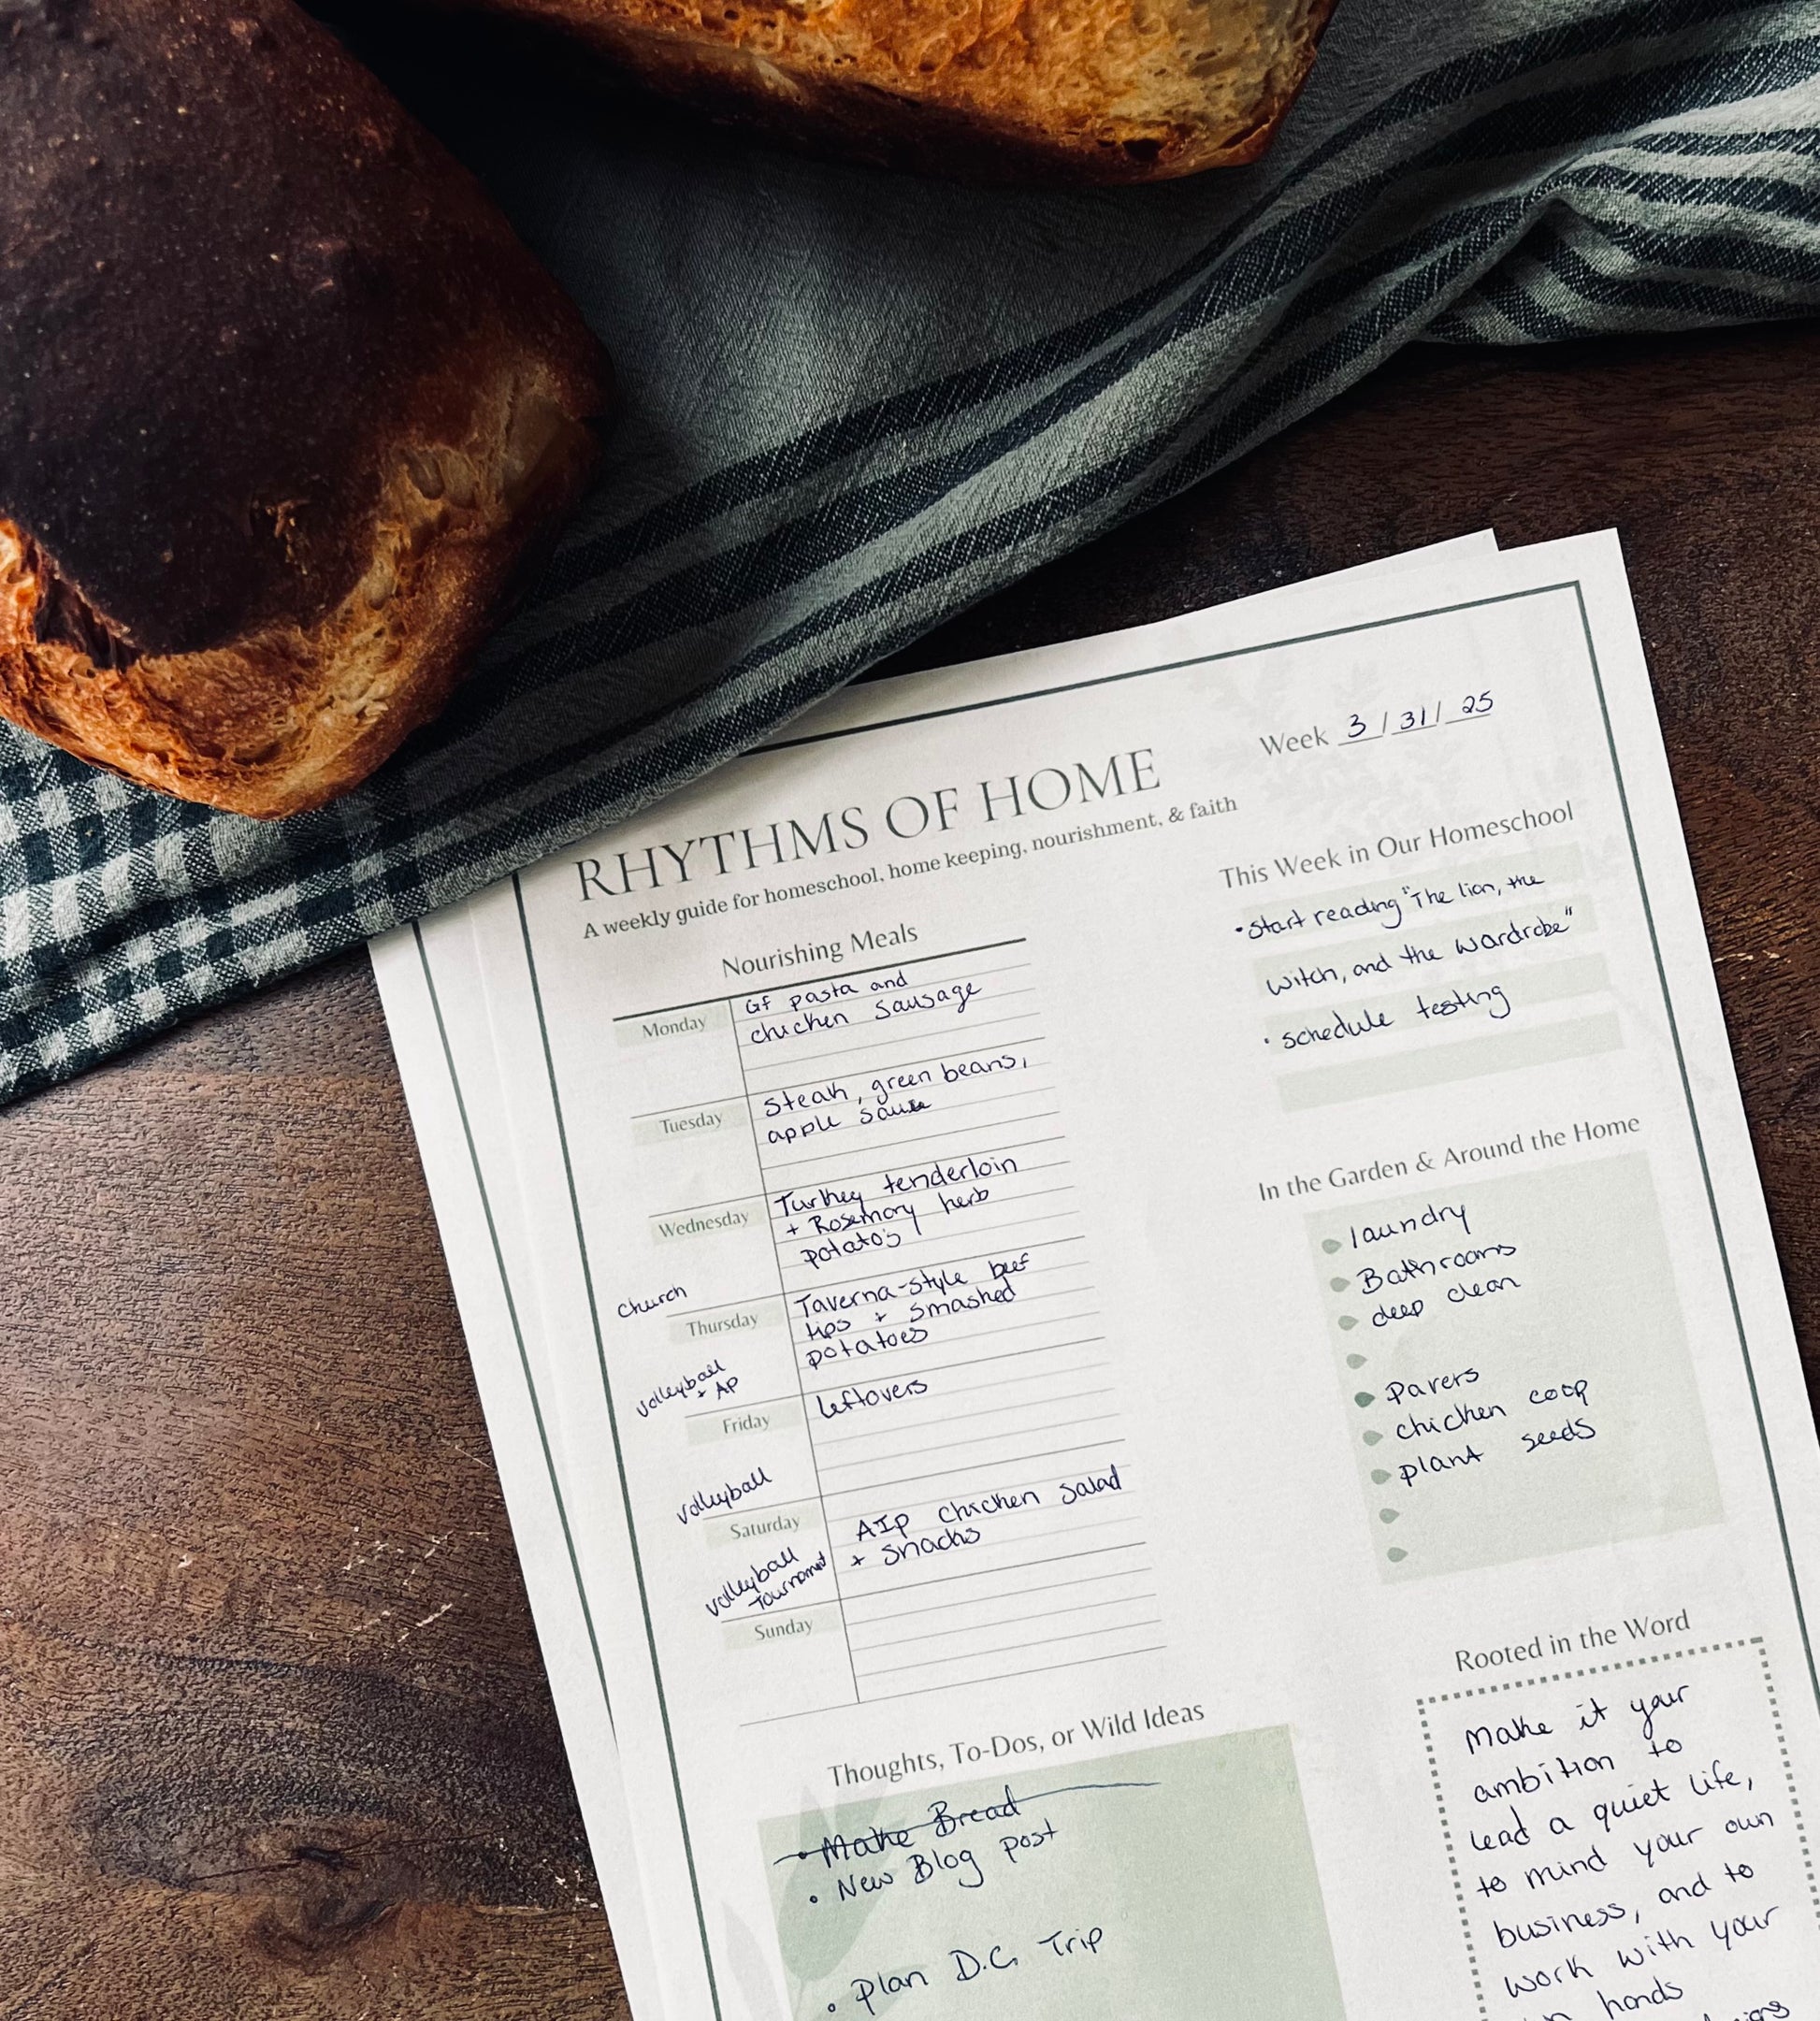 RHYTHMS OF HOME
A weekly guide for homeschool, home keeping, nourishment, & faith
Week 3/31/25
Nourishing Meals
Monday
GF pasta and
chicken sausage
Tuesday
Steak, green beans,
apple sauce
Wednesday
Turkey tenderloin
+ Rosemary herb
potato's
church
Thursday
Taverna-style beef
tips + smashed
potatoes
volleyball
+ AP
Friday
leftovers
volleyball
Saturday
AIP chicken salad
+ snacks
volleyball
tournament
Sunday
This Week in Our Homeschool
• start reading "The lion, the
witch, and the wardrobe"
• schedule testing
In the Garden & Around the Home
laundry
Bathrooms
deep clean
pavers
chicken coop
plant seeds
Thoughts, To-Dos, or Wild Ideas
• Make Bread
• New Blog post
• Plan D.C. Trip
Rooted in the Word
Make it your
ambition to
lead a quiet life,
to mind your own
business, and to
work with your
hands